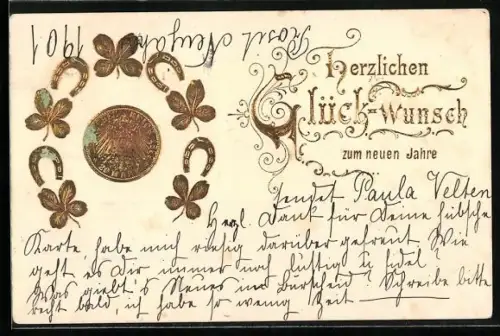 Prosit Neujahr 1901
Herzlichen
Glück-Wunsch
zum neuen Jahre
sendet Paula Velten
Herzl. Dank für Deine hübsche
Karte, habe mich riesig darüber gefreut. Wie
geht es Dir immer noch lustig u. fidel?
Was giebt's Neues in Burscheid? Schreibe bitte
recht bald, ich habe so wenig Zeit
20 MARK